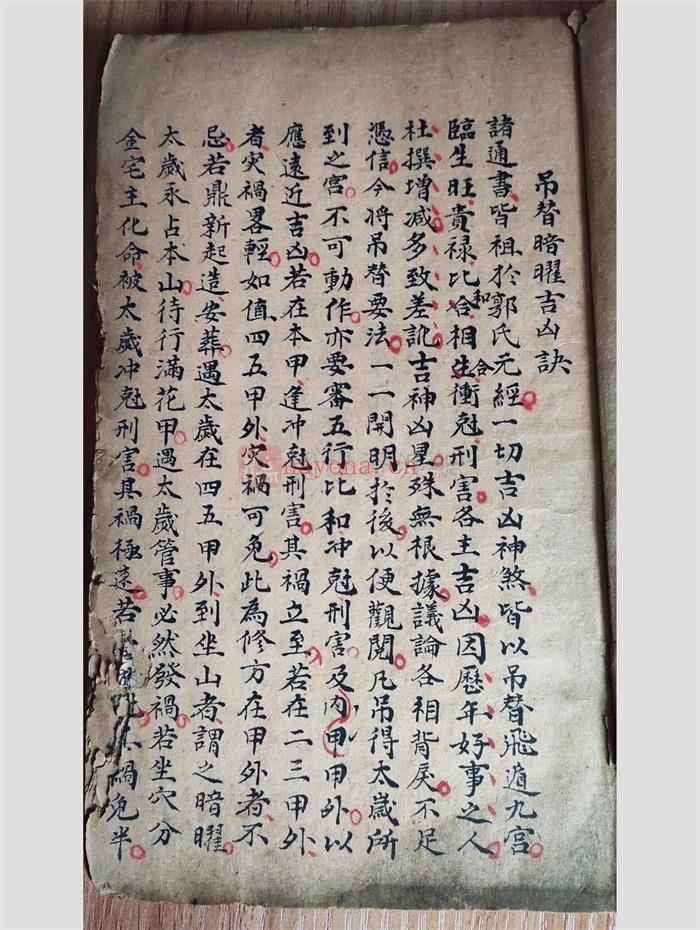 吊替暗曜吉凶訣
諸通書皆祖於郭氏元經一切吉凶神煞皆以吊替飛遁九宮
臨生旺貴祿比和合相生合衝尅刑害各主吉凶因歷年好事之人
杜撰增减多致差訛吉神凶星殊無根據議論各相背戾不足
憑信今將吊替要法一一開明於後以便觀閱凡吊得太歲所
到之宮不可動作亦要審五行比和冲尅刑害及内甲甲外以
應遠近吉凶若在本甲逢冲尅刑害其禍立至若在二三甲外
者灾禍畧輕如值四五甲外灾禍可免此為修方在甲外者不
忌若鼎新起造安葬遇太歲在四五甲外到坐山者謂之暗曜
太歲永占本山待行滿花甲遇太歲管事必然發禍若坐穴分
金宅主化命被太歲冲尅刑害其禍極速若禍免半
nayona.cn